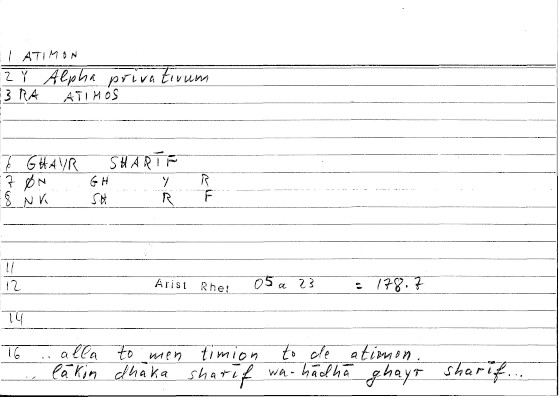 1 ATIMON
2 Y Alpha privativum
3 RA ATIMOS
6 GHAYR SHARĪF
7 ØN GH Y R
8 NK SH R F
11
12 Arist Rhet 05a 23 = 178.7
14
16 ..alla to men timion to de atimon.
.. lākin dhāka sharīf wa-hādhā ghayr sharīf...